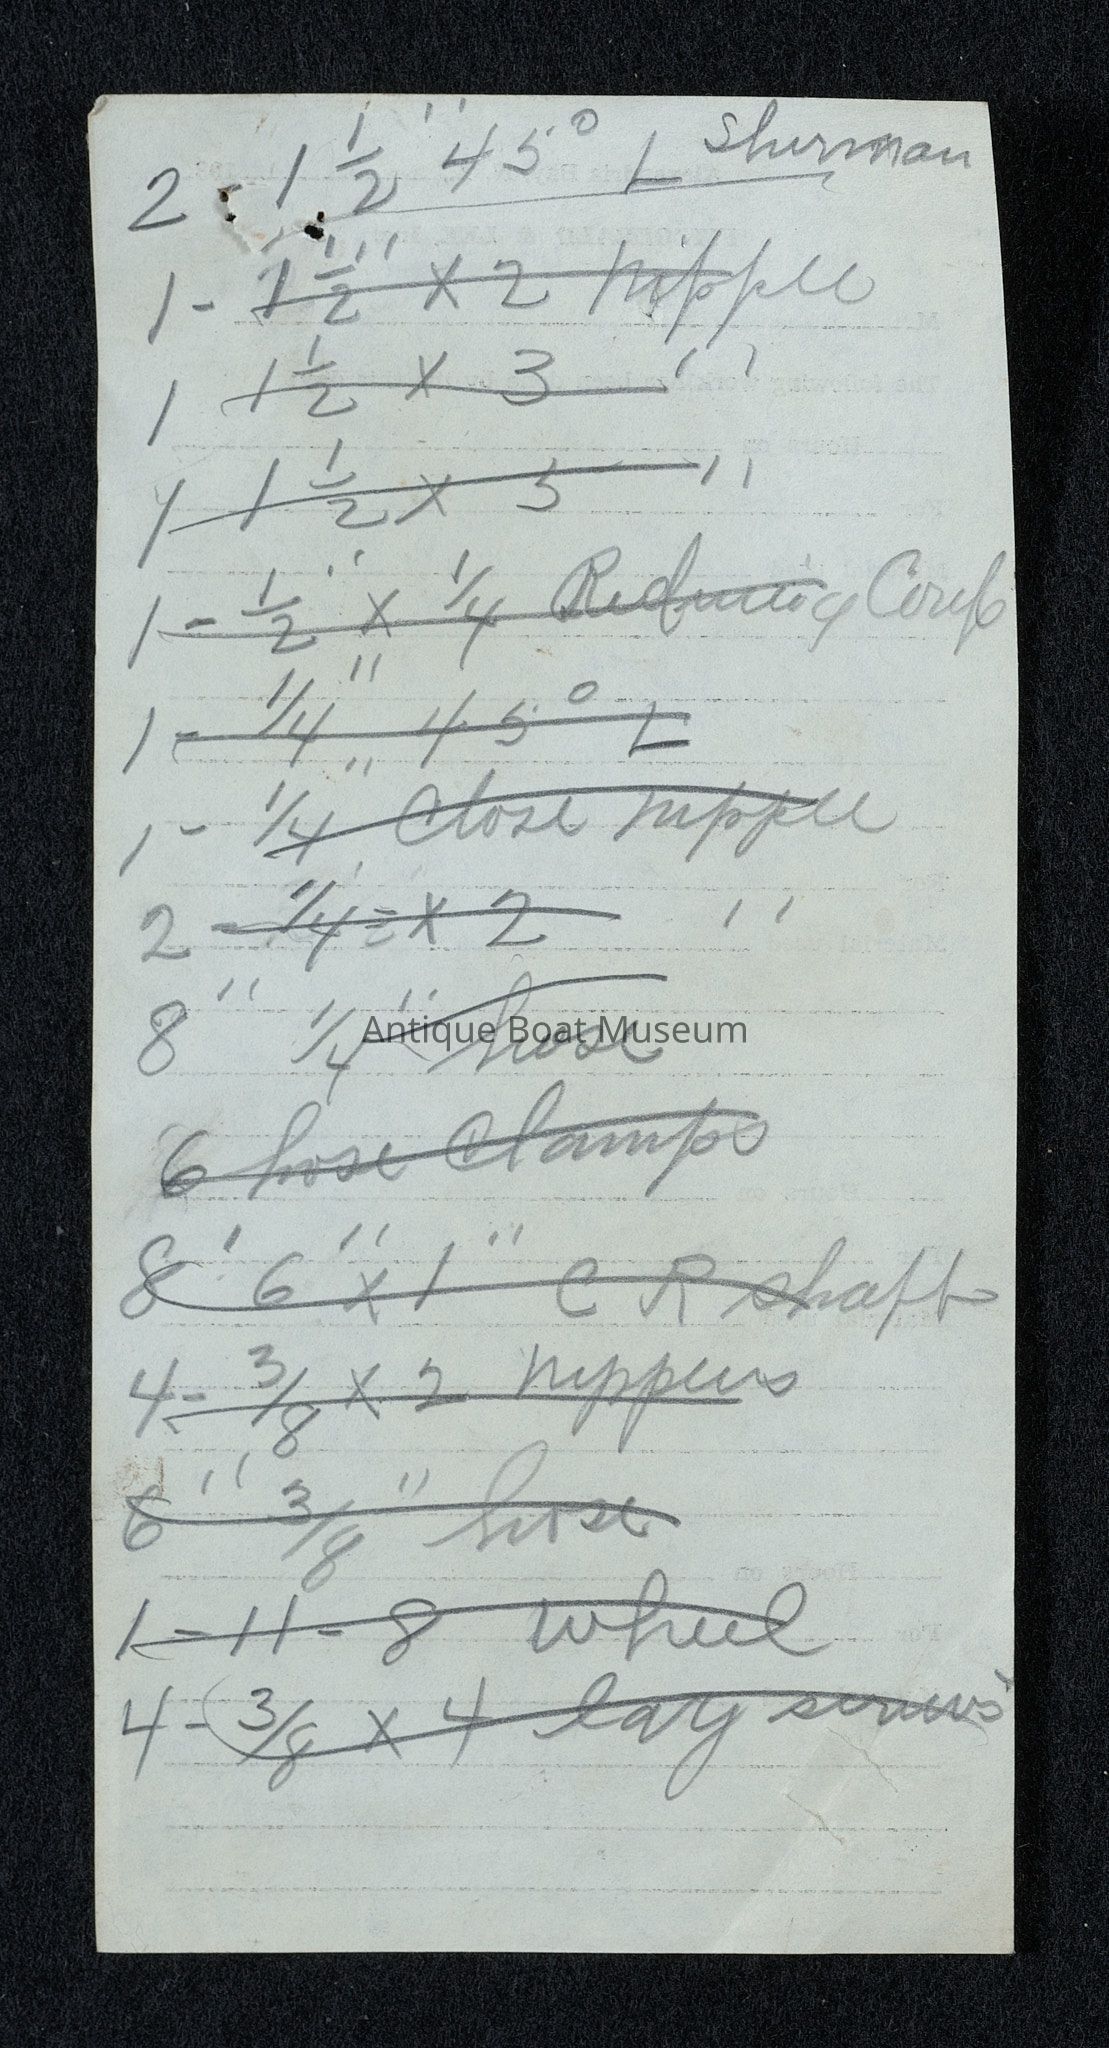 2 - 1 1/2" 45° L Sherman
1 - 1 1/2" x 2 nipple
1 1 1/2 x 3 " 
1 1 1/2 x 5 "
1 - 1/2" x 1/4 Reducing Coup
1 - 1/4" 45° L
1 - 1/4" Close nipple
2 - 1/4" x 2 "
8" 1/4" hose
Antique Boat Museum
6 hose Clamps
8' 6" x 1" C R shaft
4 - 3/8 x 2 nipples
8" 3/8" hose
1 - 11 - 8 wheel
4 - 3/8 x 4 lag screws